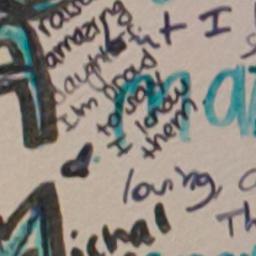 raise
amazing
daughters
I'm proud
to say
I know
them.
+ I
ma
loving,
Th
ichal